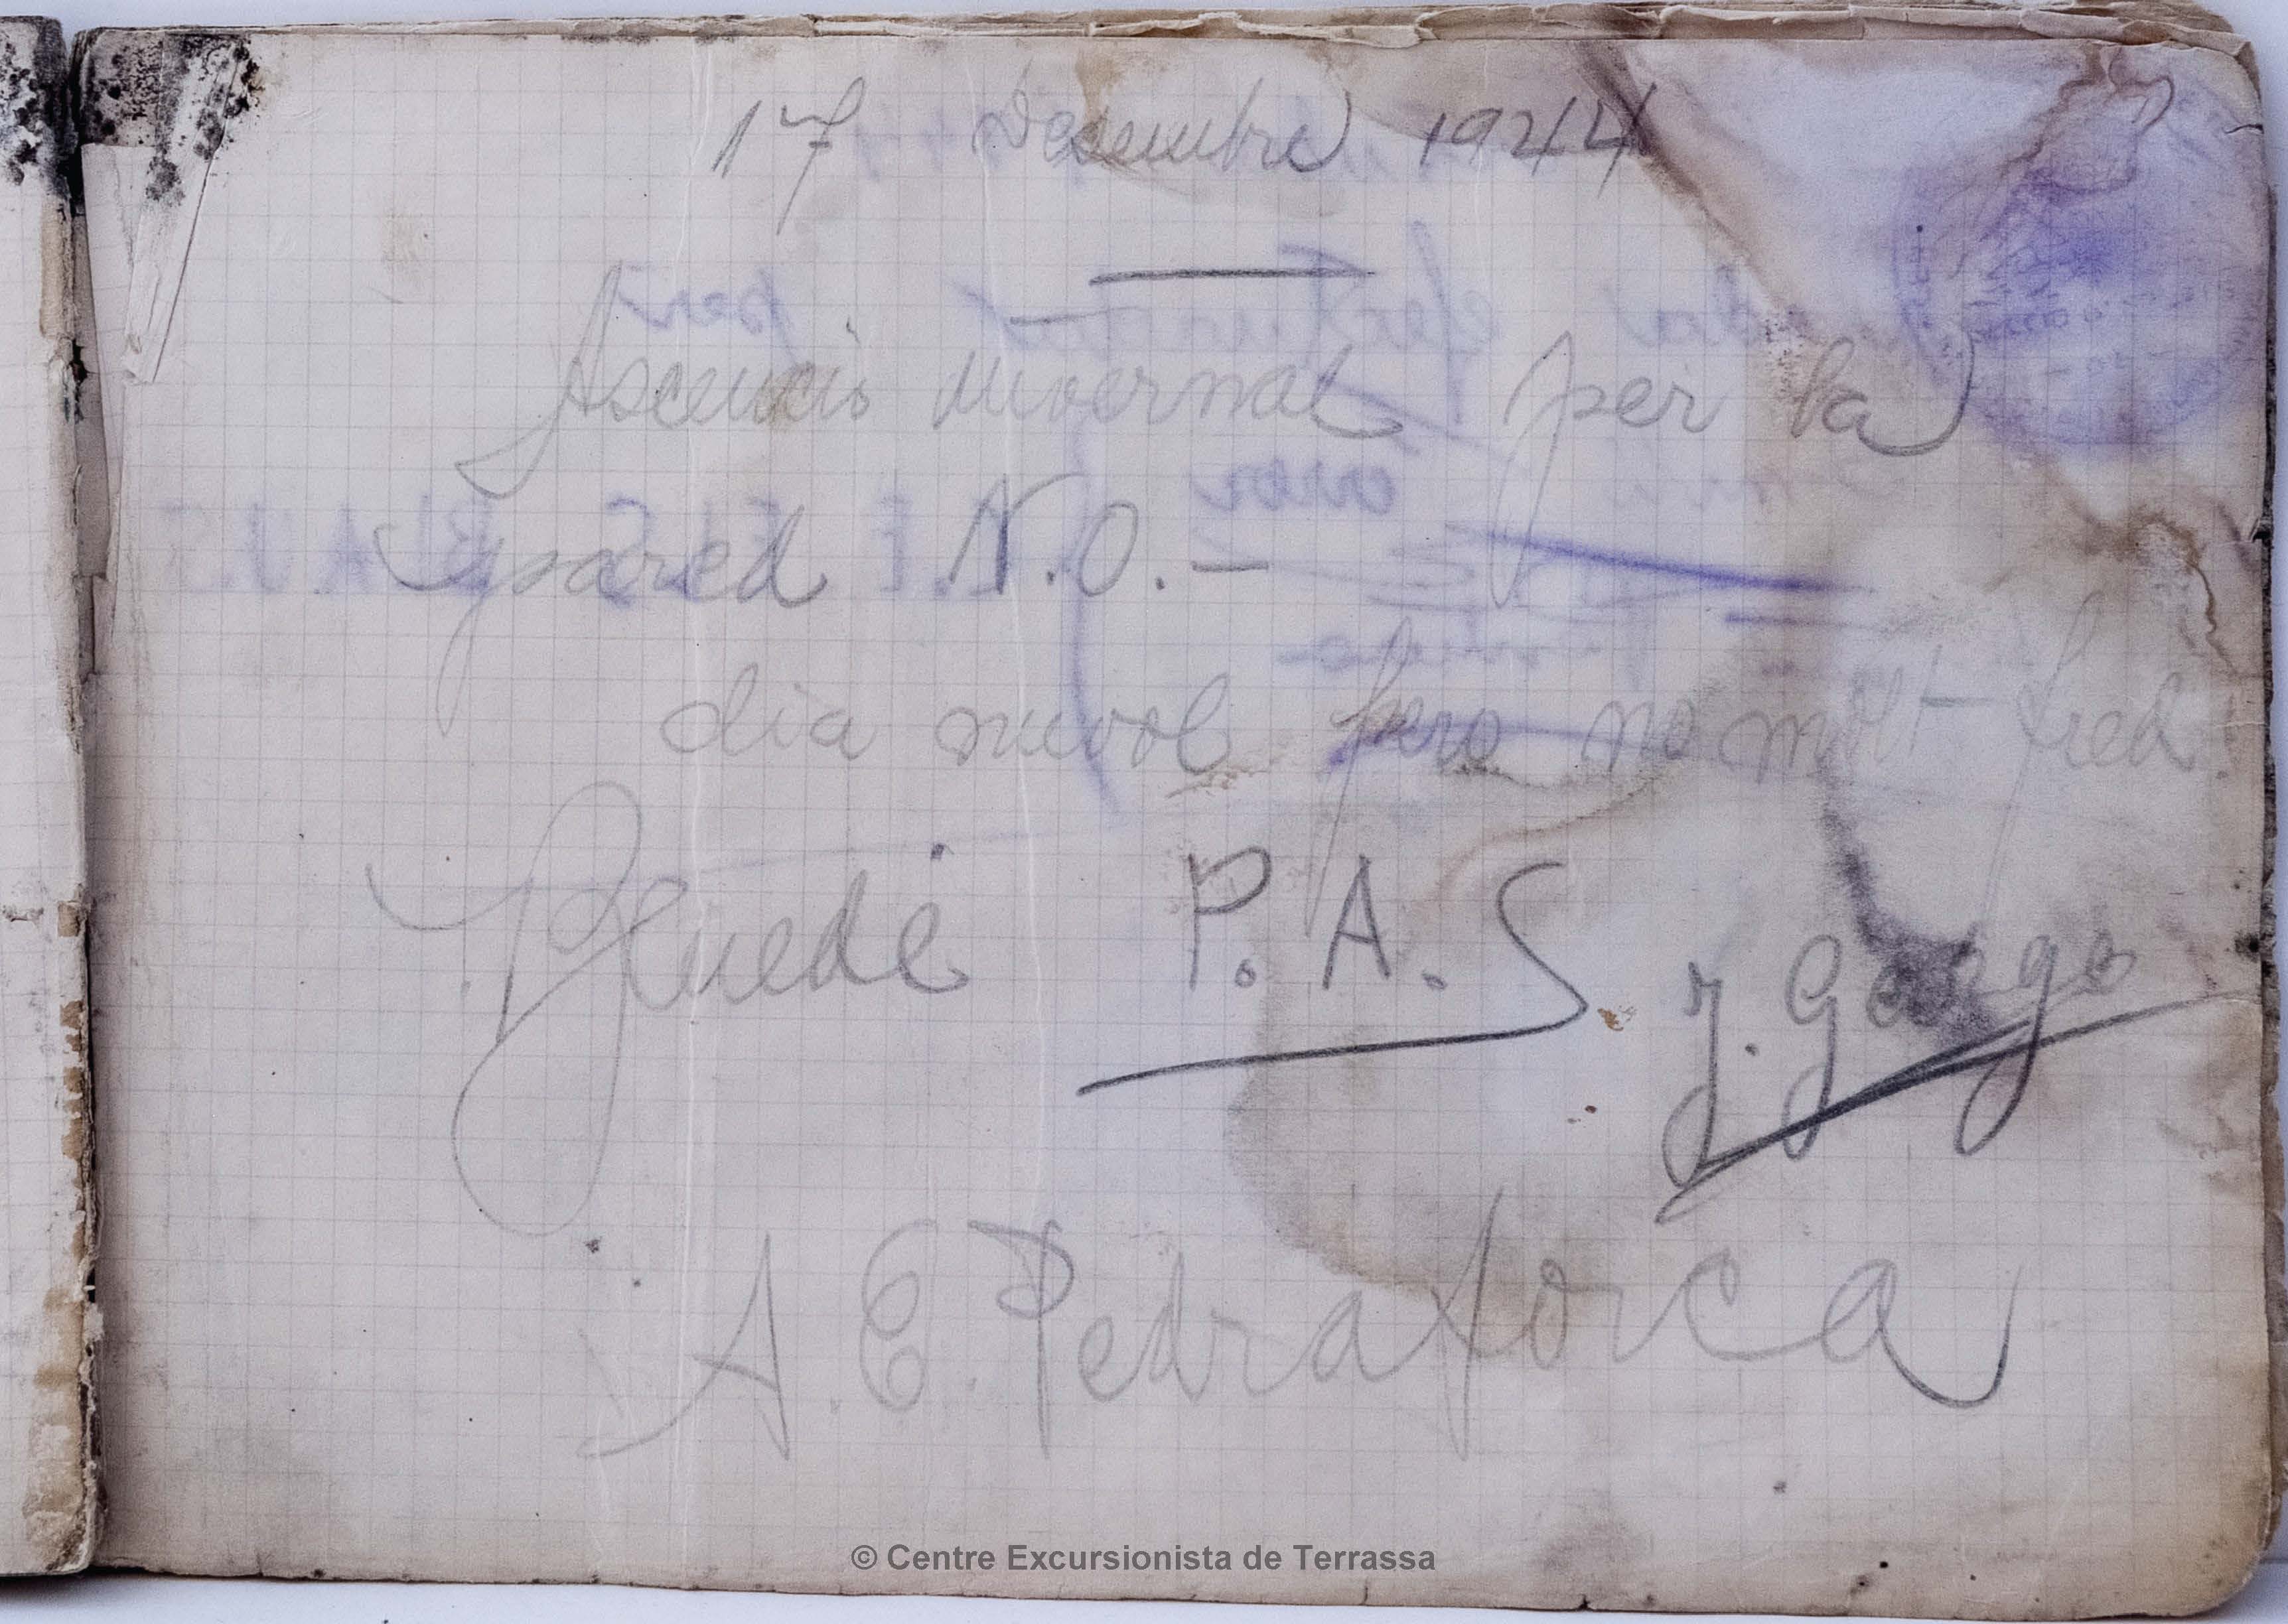 17 Desembre 1944
Ascencio nivernal per la
pared N.O. —
dia nuvol pero no molt fred
P.A.S. J. Gorgo
A.E. Pedraforca
© Centre Excursionista de Terrassa